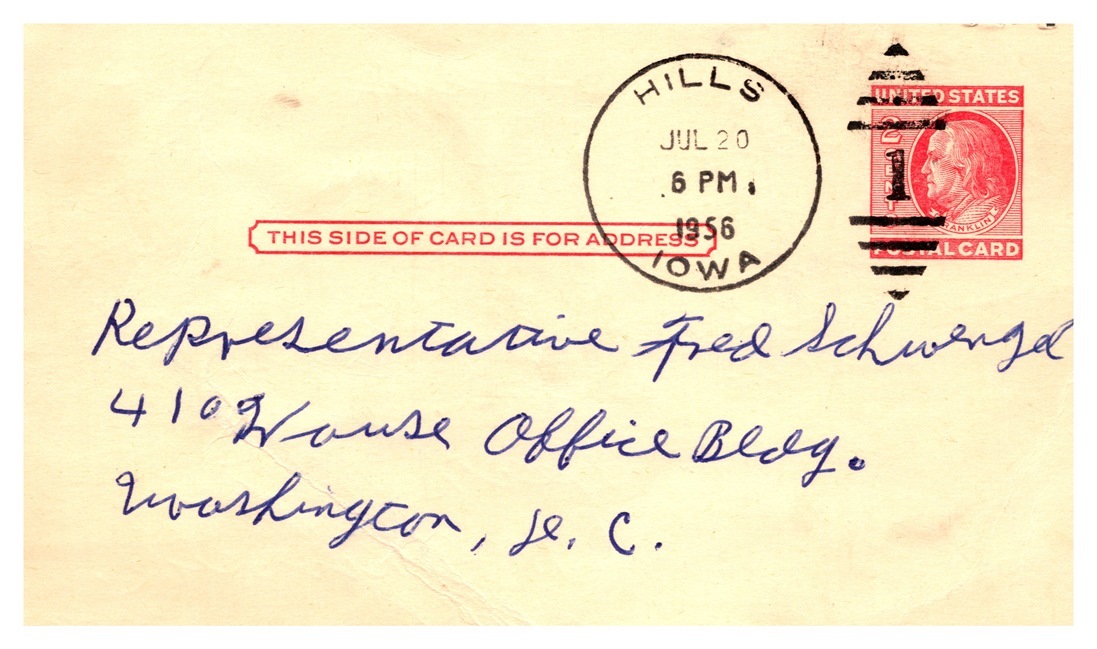 HILLS
JUL 20
6 PM
1956
IOWA
1
UNITED STATES
2 CENTS
FRANKLIN
POSTAL CARD
THIS SIDE OF CARD IS FOR ADDRESS
Representative Fred Schwengel
410 House Office Bldg.
Washington, D. C.